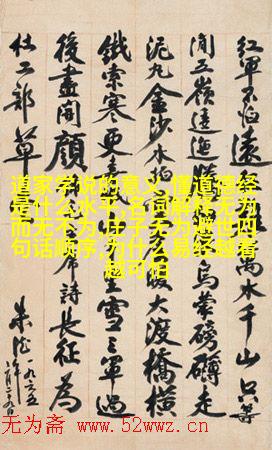 紅軍不怕遠
萬水千山只等
閒五嶺逶迤
烏蒙磅礴走
泥丸金沙水拍
暖大渡橋橫
鐵索寒更喜
里雪三軍過
後盡開顏
席詩長征為
杜工部草
朱德
一九六五
道家学说的意义,懂道德经
是什么水平,名词解释无为
而无不为,庄子无为避世四
句话顺序,为什么易经越看
越可怕
无为斋 www.52wwz.cn